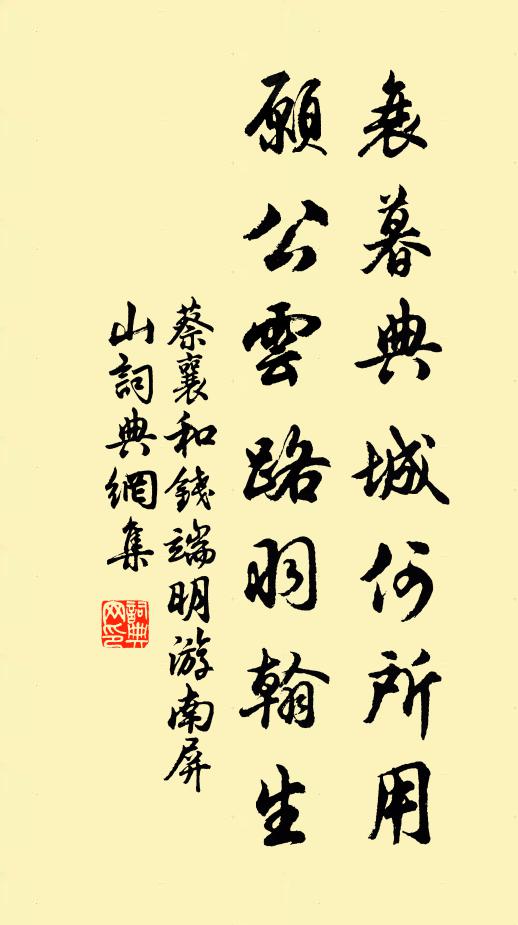 衰暮典城何所用
願公雲路羽翰生
蔡襄和錢端明游南屏
山詞典網集
詞典
网印